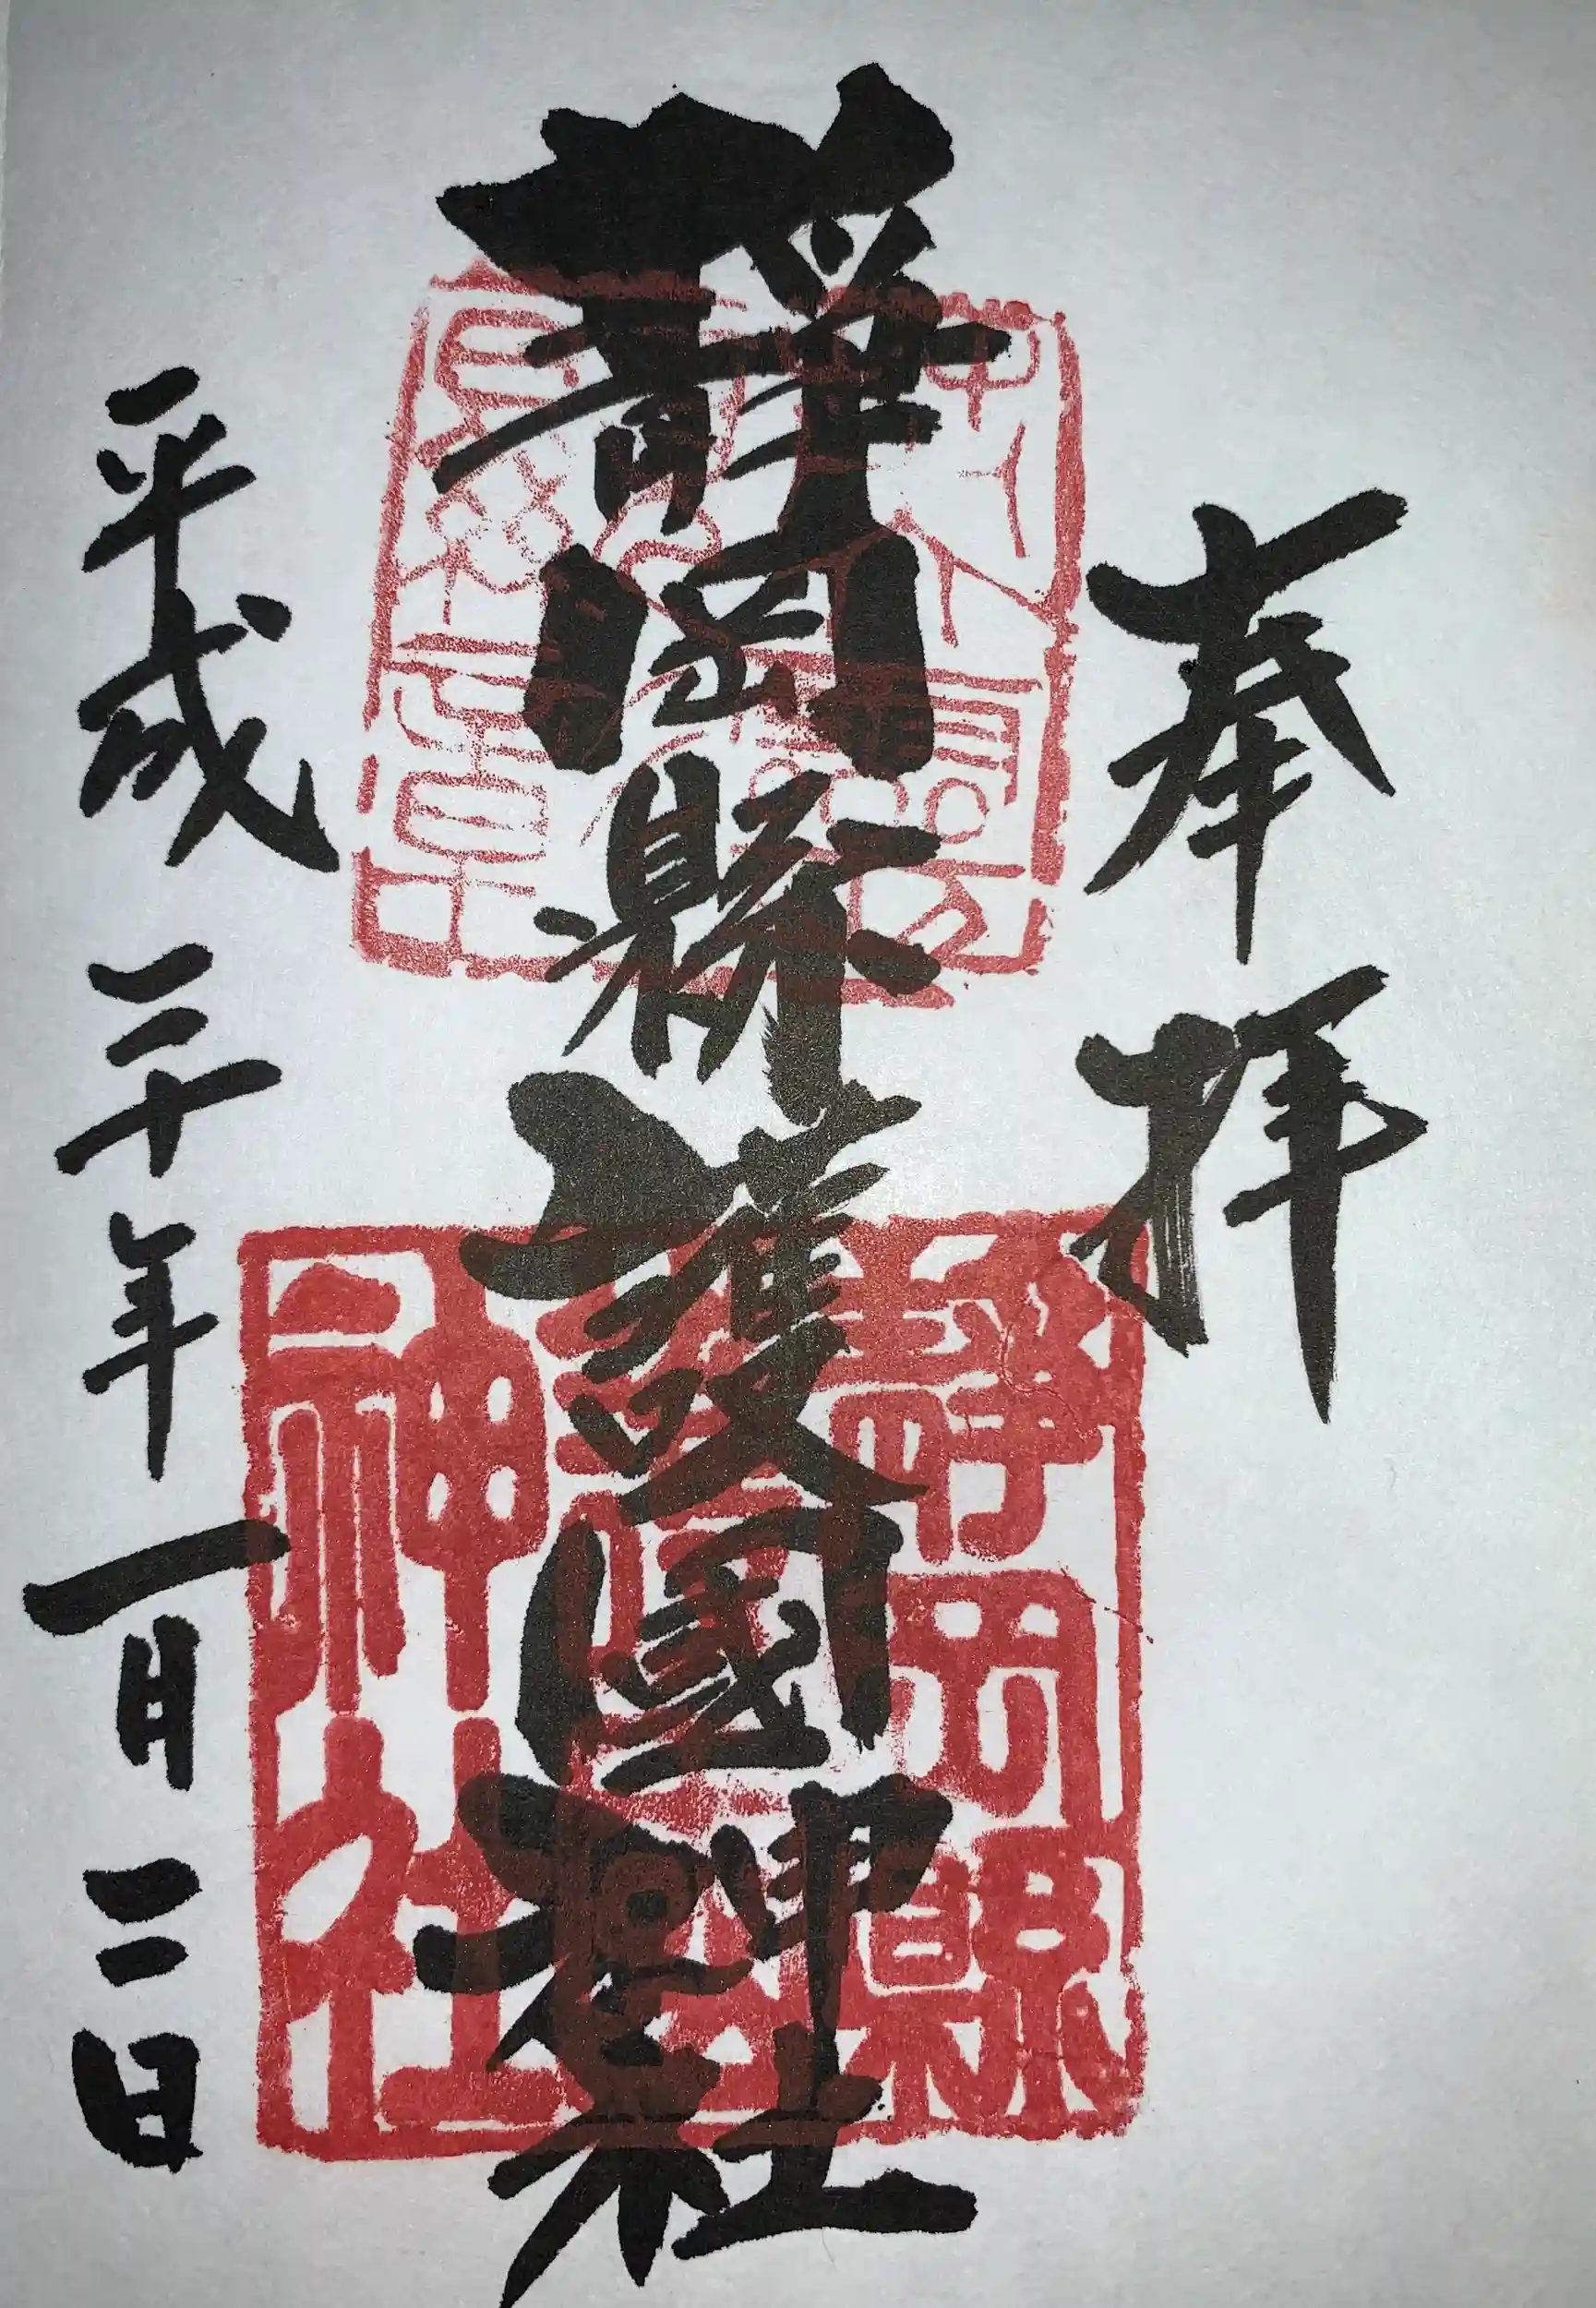 奉拝
静岡縣護國神社
平成三十年一月二日
静岡縣
護國
神社